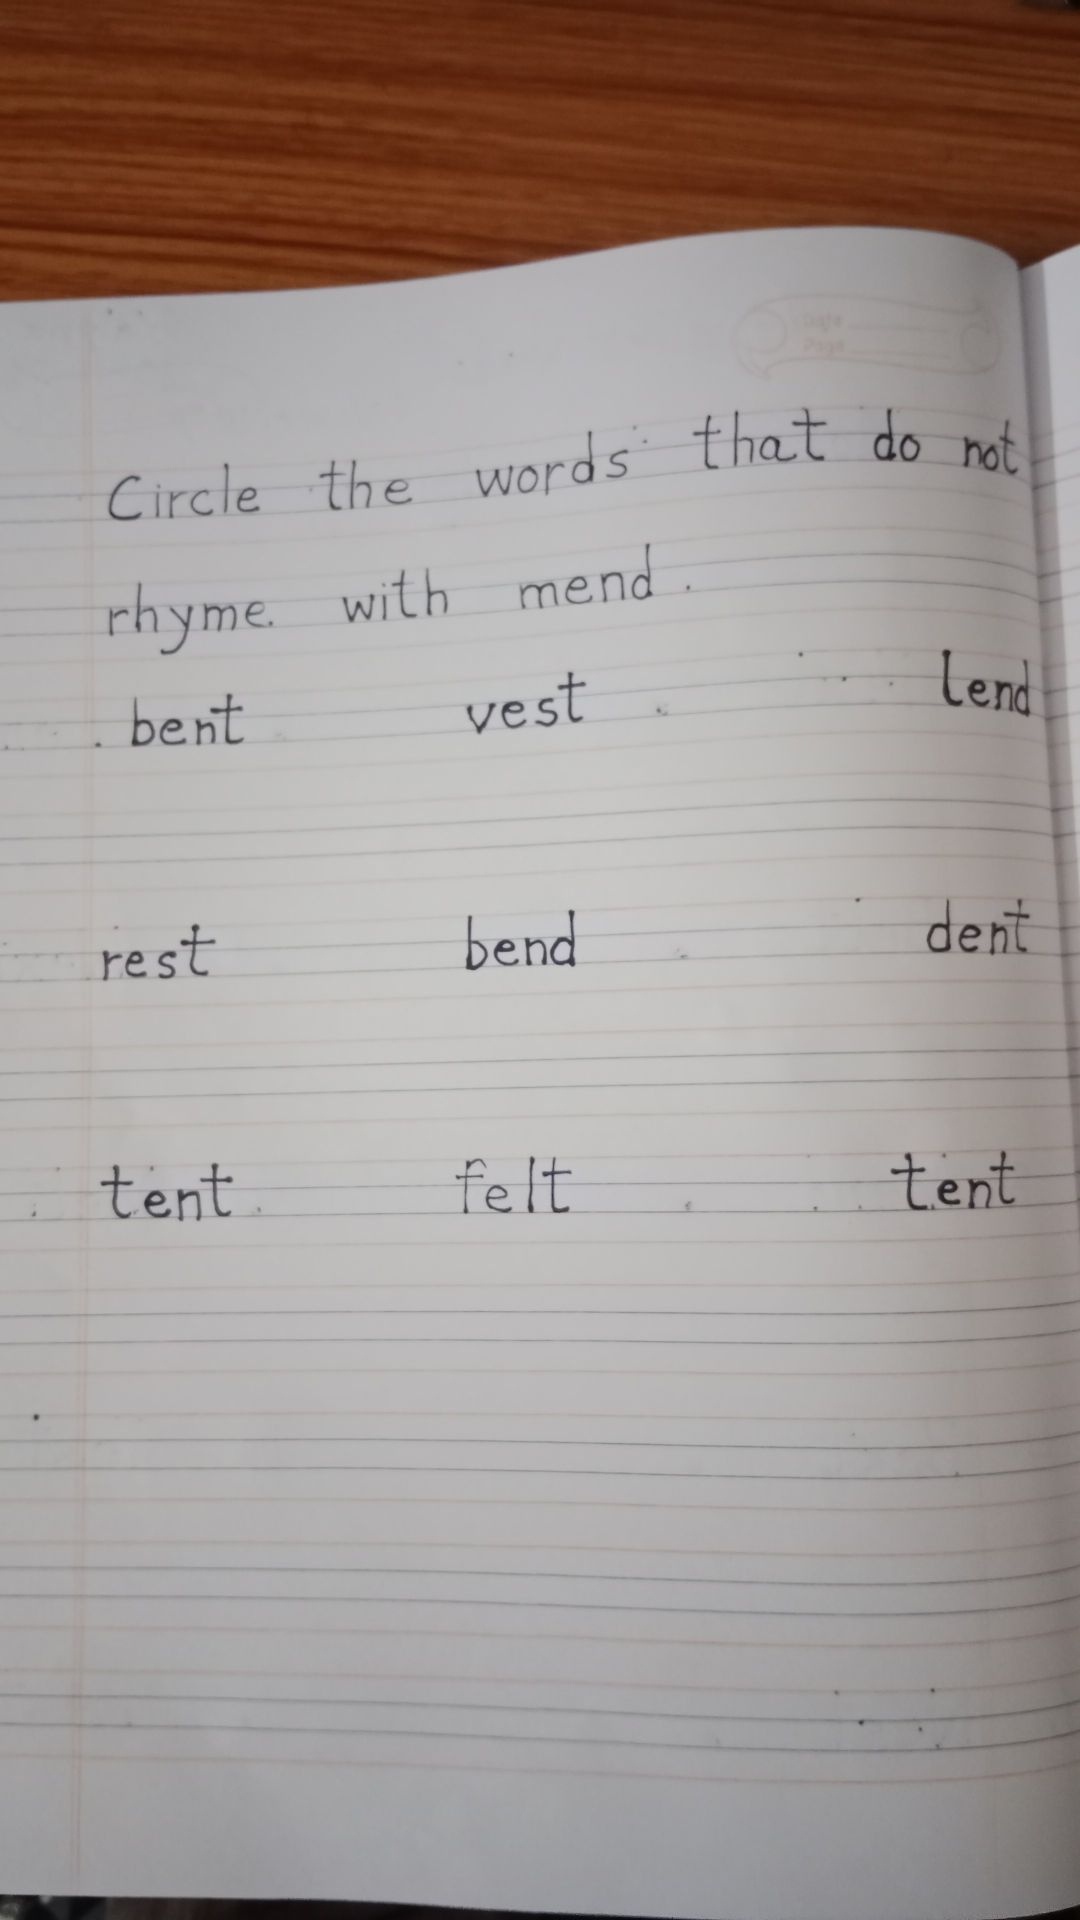 Date
Page
Circle the words that do not
rhyme. with mend.
bent vest lend
rest bend dent
tent felt tent